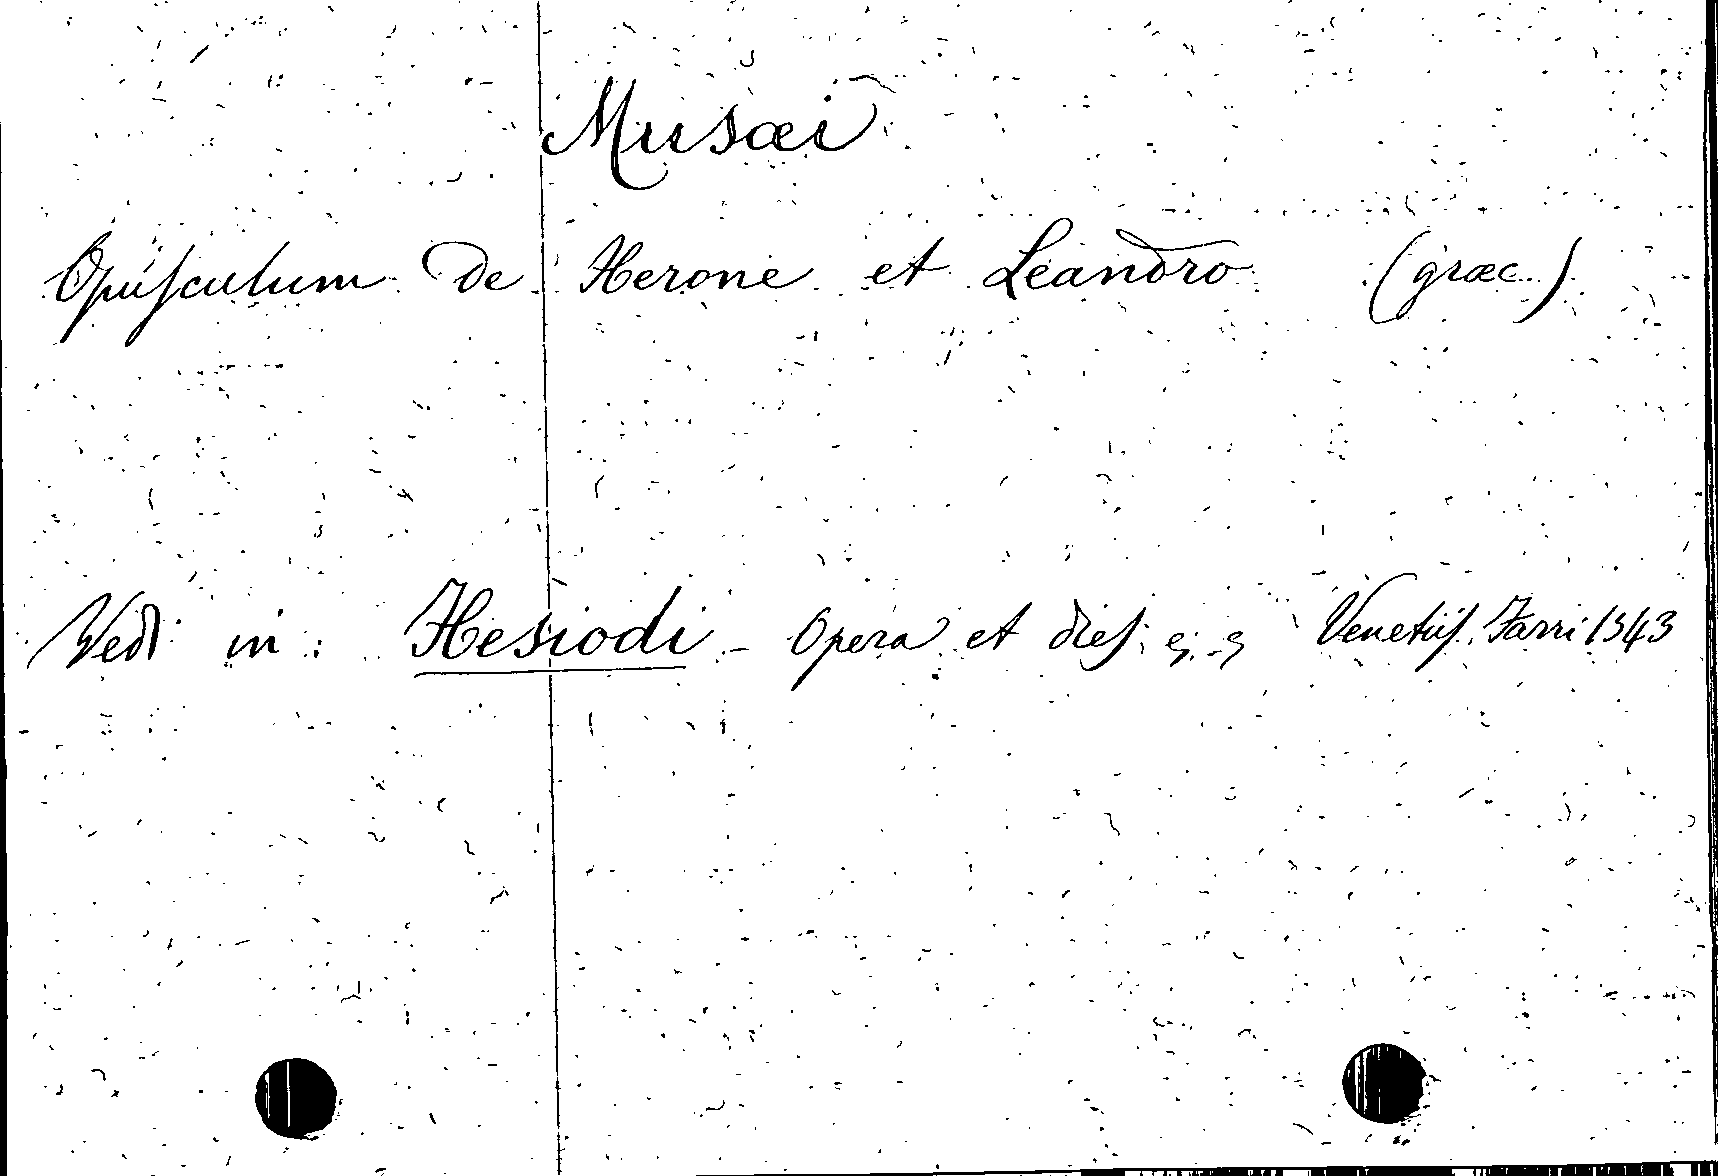 Musæi
Opusculum de Herone et Leandro (græc.)
Vedi in: Hesiodi - Opera et dies. Venetiis. Farri 1543